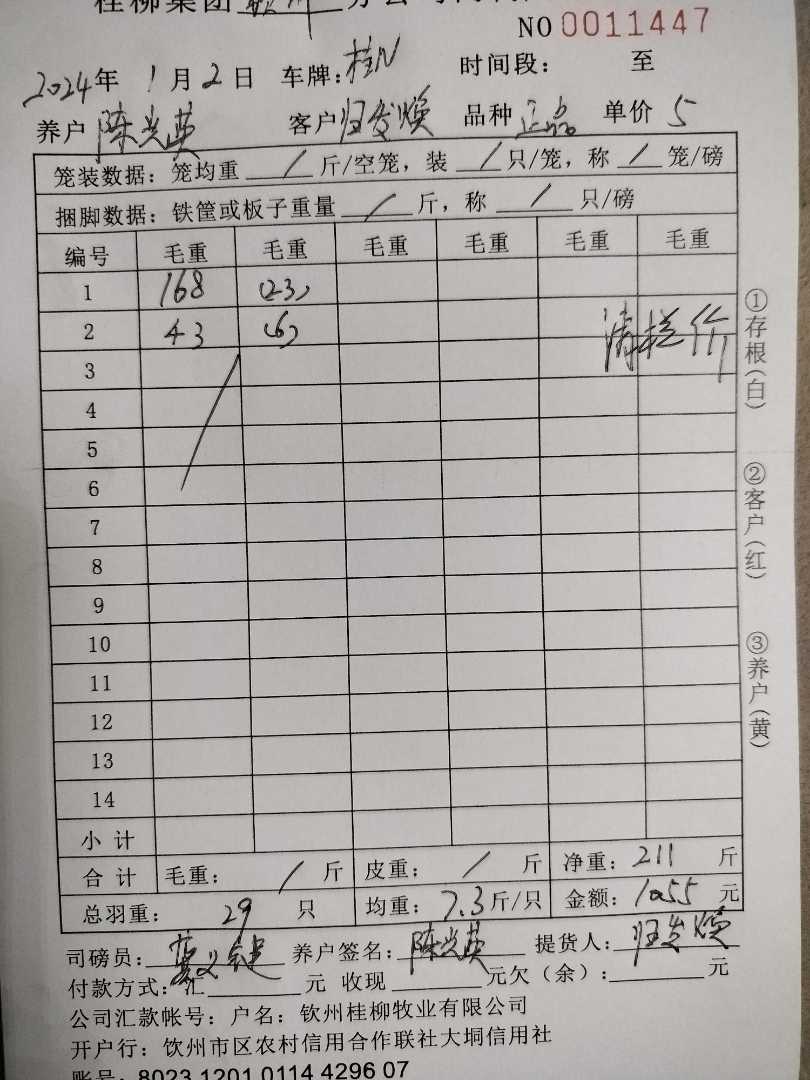 桂柳集团 钦州 分公司
NO 0011447
2024年 1月2日 车牌:桂N 时间段: 至
养户 陈光英 客户 归发焕 品种 正品 单价 5
笼装数据:笼均重 / 斤/空笼,装 / 只/笼,称 / 笼/磅
捆脚数据:铁筐或板子重量 / 斤,称 / 只/磅
编号 毛重 毛重 毛重 毛重 毛重 毛重
1 168 (23)
2 43 (6) 清栏价
3
4
5
6
7
8
9
10
11
12
13
14
小计
合计 毛重: / 斤 皮重: / 斤 净重: 211 斤
总羽重: 29 只 均重: 7.3 斤/只 金额: 1055 元
司磅员: 养户签名: 陈光英 提货人: 归发焕
付款方式:汇 元 收现 元欠(余): 元
公司汇款帐号:户名:钦州桂柳牧业有限公司
开户行:钦州市区农村信用合作联社大垌信用社
账号:8023 1201 0114 4296 07
①存根(白)
②客户(红)
③养户(黄)